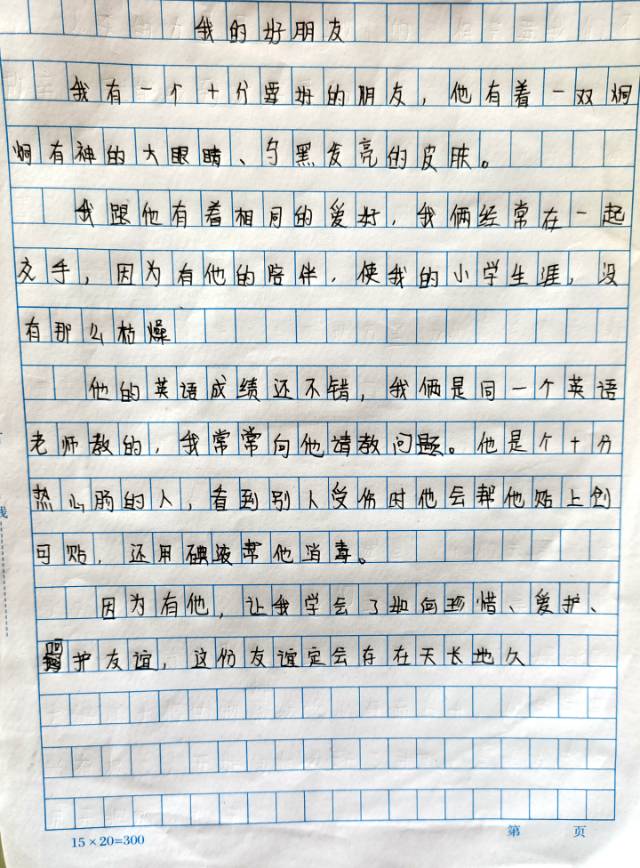 我的好朋友
我有一个十分要好的朋友，他有着一双炯
炯有神的大眼睛、匀黑发亮的皮肤。
我跟他有着相同的爱好，我俩经常在一起
交手，因为有他的陪伴，使我的小学生涯，没
有那么枯燥
他的英语成绩还不错，我俩是同一个英语
老师教的，我常常向他请教问题。他是个十分
热心肠的人，看到别人受伤时他会帮他贴上创
可贴，还用碘液帮他消毒。
因为有他，让我学会了如何珍惜、爱护、
护友谊，这份友谊定会存在天长地久
15×20=300
第 页
线